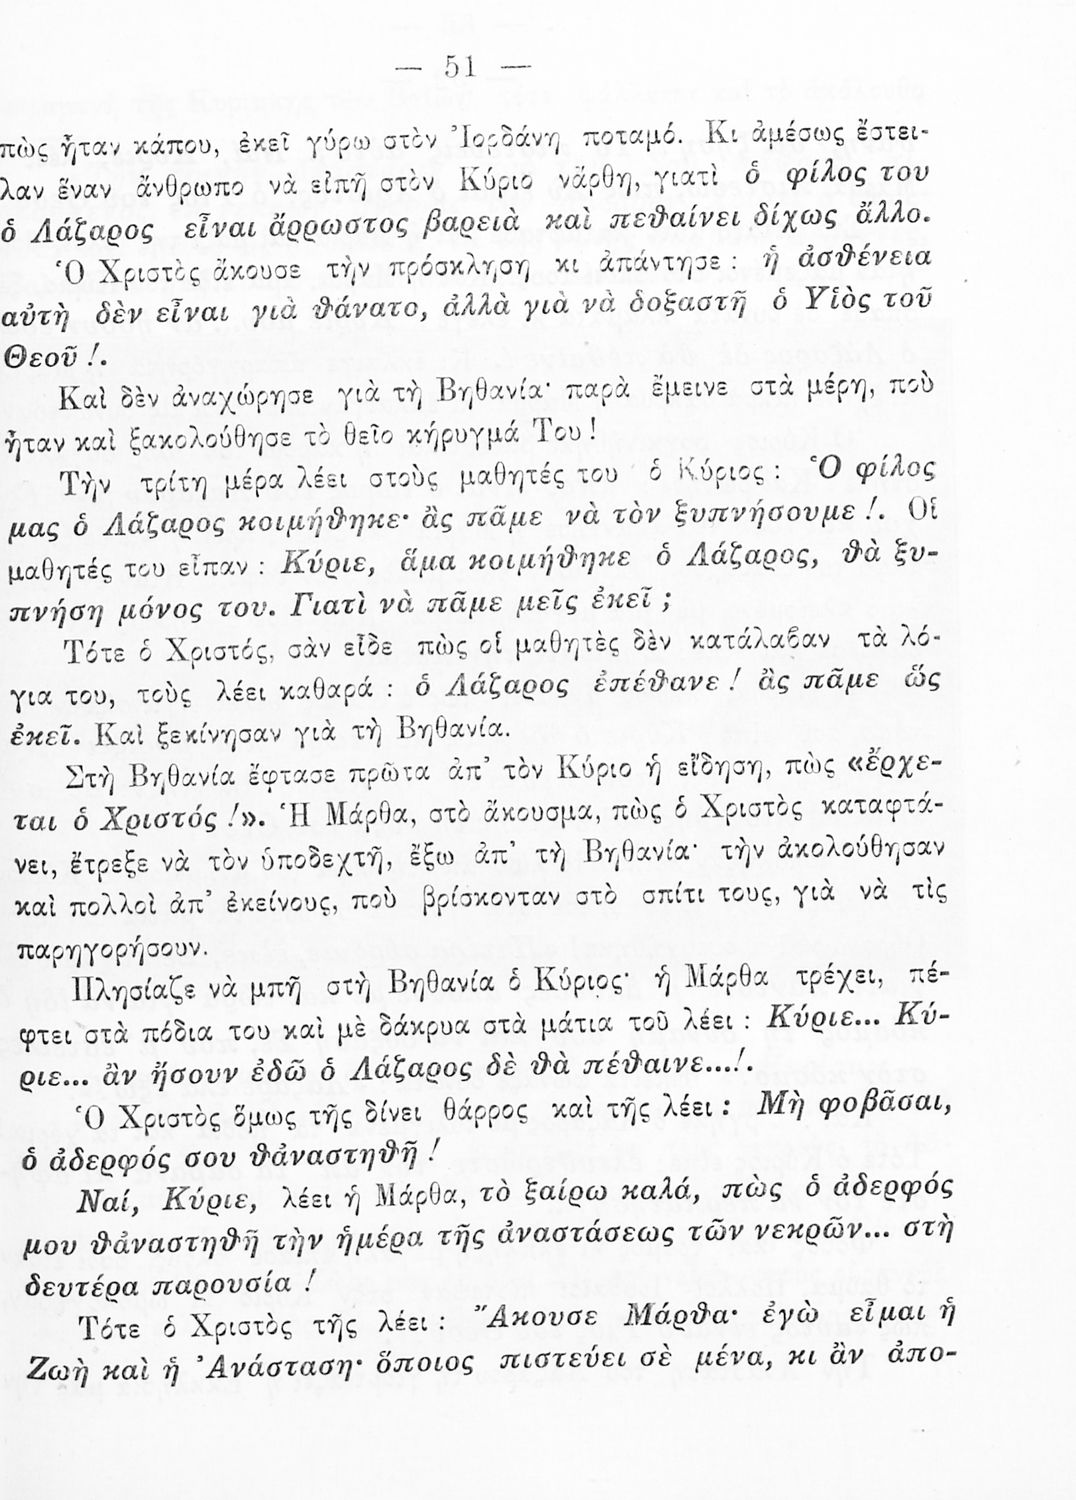 — 51 —
πὼς ἦταν κάπου, ἐκεῖ γύρω στὸν Ἰορδάνη ποταμό. Κι ἀμέσως ἔστει-
λαν ἕναν ἄνθρωπο νὰ εἰπῆ στὸν Κύριο νἄρθη, γιατὶ ὁ φίλος του
ὁ Λάζαρος εἶναι ἄρρωστος βαρειὰ καὶ πεθαίνει δίχως ἄλλο.
Ὁ Χριστὸς ἄκουσε τὴν πρόσκληση κι ἀπάντησε : ἡ ἀσθένεια
αὐτὴ δὲν εἶναι γιὰ θάνατο, ἀλλὰ γιὰ νὰ δοξαστῆ ὁ Υἱὸς τοῦ
Θεοῦ !.
Καὶ δὲν ἀναχώρησε γιὰ τὴ Βηθανία· παρὰ ἔμεινε στὰ μέρη, ποὺ
ἦταν καὶ ξακολούθησε τὸ θεῖο κήρυγμά Του !
Τὴν τρίτη μέρα λέει στοὺς μαθητές του ὁ Κύριος : Ὁ φίλος
μας ὁ Λάζαρος κοιμήθηκε· ἂς πᾶμε νὰ τὸν ξυπνήσουμε !. Οἱ
μαθητές του εἶπαν : Κύριε, ἅμα κοιμήθηκε ὁ Λάζαρος, θὰ ξυ-
πνήση μόνος του. Γιατὶ νὰ πᾶμε μεῖς ἐκεῖ ;
Τότε ὁ Χριστός, σὰν εἶδε πὼς οἱ μαθητὲς δὲν κατάλαβαν τὰ λό-
για του, τοὺς λέει καθαρά : ὁ Λάζαρος ἐπέθανε ! ἂς πᾶμε ὣς
ἐκεῖ. Καὶ ξεκίνησαν γιὰ τὴ Βηθανία.
Στὴ Βηθανία ἔφτασε πρῶτα ἀπ’ τὸν Κύριο ἡ εἴδηση, πὼς «ἔρχε-
ται ὁ Χριστός !». Ἡ Μάρθα, στὸ ἄκουσμα, πὼς ὁ Χριστὸς καταφτά-
νει, ἔτρεξε νὰ τὸν ὑποδεχτῆ, ἔξω ἀπ’ τὴ Βηθανία· τὴν ἀκολούθησαν
καὶ πολλοὶ ἀπ’ ἐκείνους, ποὺ βρίσκονταν στὸ σπίτι τους, γιὰ νὰ τὶς
παρηγορήσουν.
Πλησίαζε νὰ μπῆ στὴ Βηθανία ὁ Κύριος· ἡ Μάρθα τρέχει, πέ-
φτει στὰ πόδια του καὶ μὲ δάκρυα στὰ μάτια τοῦ λέει : Κύριε... Κύ-
ριε... ἂν ἤσουν ἐδῶ ὁ Λάζαρος δὲ θὰ πέθαινε...!.
Ὁ Χριστὸς ὅμως τῆς δίνει θάρρος καὶ τῆς λέει : Μὴ φοβᾶσαι,
ὁ ἀδερφός σου θἀναστηθῆ !
Ναί, Κύριε, λέει ἡ Μάρθα, τὸ ξαίρω καλά, πὼς ὁ ἀδερφός
μου θἀναστηθῆ τὴν ἡμέρα τῆς ἀναστάσεως τῶν νεκρῶν... στὴ
δευτέρα παρουσία !
Τότε ὁ Χριστὸς τῆς λέει : Ἄκουσε Μάρθα· ἐγὼ εἶμαι ἡ
Ζωὴ καὶ ἡ Ἀνάσταση· ὅποιος πιστεύει σὲ μένα, κι ἂν ἀπο-